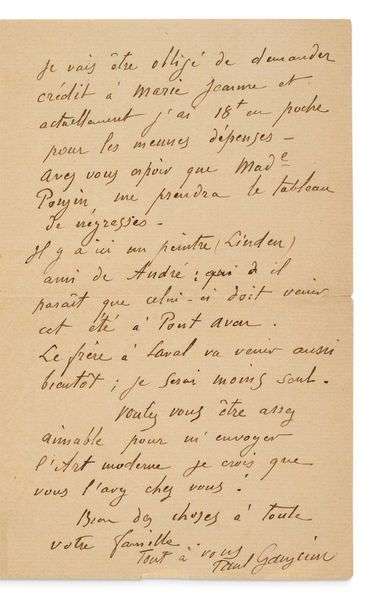 Je vais être obligé de demander
crédit à Marie Jeanne et
actuellement j'ai 18f en poche
pour les menues dépenses —
Avez vous espoir que Made
Poujin me prendra le tableau
de négresses —
Il y a ici un peintre (Linden)
ami de André ; il
paraît que celui-ci doit venir
cet été à Pont Aven.
Le frère à Laval va venir aussi
bientôt ; je serai moins seul.
Voulez vous être assez
aimable pour m'envoyer
l'Art moderne je crois que
vous l'avez chez vous !
Bien des choses à toute
votre famille.
Tout à vous
Paul Gauguin